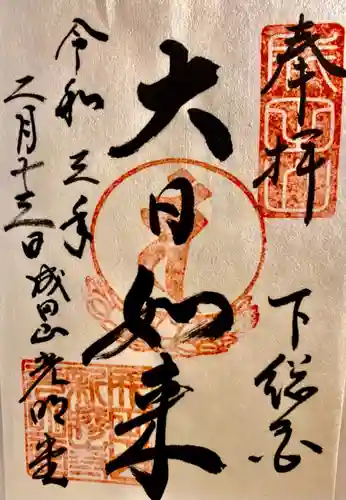 奉拝
下総国
大日如来
令和三年
二月十三日成田山光明堂